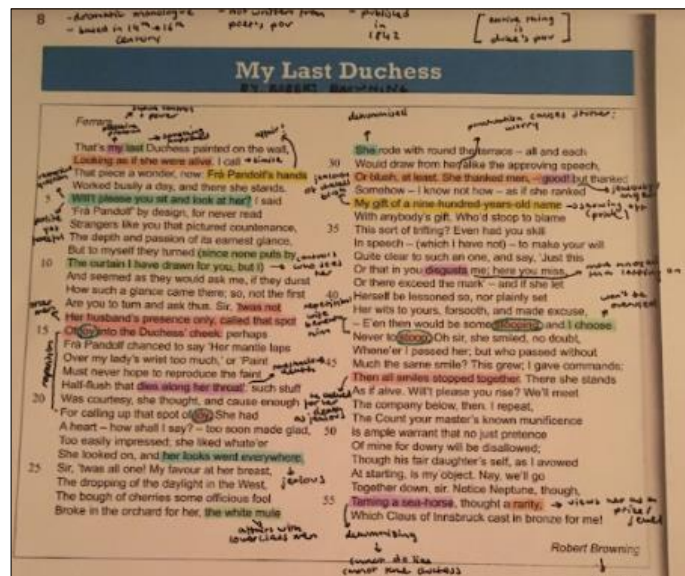 8
- dramatic monologue
- based in 14th + 16th century
- not written from poet's pov
- published in 1842
[entire thing is duke's pov]
My Last Duchess
BY ROBERT BROWNING
Ferrara
That's my last Duchess painted on the wall,
Looking as if she were alive. I call
That piece a wonder, now: Frà Pandolf's hands
Worked busily a day, and there she stands.
5 Will't please you sit and look at her? I said
'Frà Pandolf' by design, for never read
Strangers like you that pictured countenance,
The depth and passion of its earnest glance,
But to myself they turned (since none puts by
10 The curtain I have drawn for you, but I)
And seemed as they would ask me, if they durst,
How such a glance came there; so, not the first
Are you to turn and ask thus. Sir, 'twas not
Her husband's presence only, called that spot
15 Of joy into the Duchess' cheek: perhaps
Frà Pandolf chanced to say 'Her mantle laps
Over my lady's wrist too much,' or 'Paint
Must never hope to reproduce the faint
Half-flush that dies along her throat': such stuff
20 Was courtesy, she thought, and cause enough
For calling up that spot of joy. She had
A heart – how shall I say? – too soon made glad,
Too easily impressed; she liked whate'er
She looked on, and her looks went everywhere.
25 Sir, 'twas all one! My favour at her breast,
The dropping of the daylight in the West,
The bough of cherries some officious fool
Broke in the orchard for her, the white mule
jealous
affairs with lower class men
dehumanised
punctuation causes stutter: worry
She rode with round the terrace – all and each
30 Would draw from her alike the approving speech,
Or blush, at least. She thanked men, – good! but thanked
Somehow – I know not how – as if she ranked
My gift of a nine-hundred-years-old name
With anybody's gift. Who'd stoop to blame
35 This sort of trifling? Even had you skill
In speech – (which I have not) – to make your will
Quite clear to such an one, and say, 'Just this
Or that in you disgusts me; here you miss,
Or there exceed the mark' – and if she let
40 Herself be lessoned so, nor plainly set
Her wits to yours, forsooth, and made excuse,
– E'en then would be some stooping; and I choose
Never to stoop. Oh sir, she smiled, no doubt,
Whene'er I passed her; but who passed without
45 Much the same smile? This grew; I gave commands;
Then all smiles stopped together. There she stands
As if alive. Will't please you rise? We'll meet
The company below, then. I repeat,
The Count your master's known munificence
50 Is ample warrant that no just pretence
Of mine for dowry will be disallowed;
Though his fair daughter's self, as I avowed
At starting, is my object. Nay, we'll go
Together down, sir. Notice Neptune, though,
55 Taming a sea-horse, thought a rarity,
Which Claus of Innsbruck cast in bronze for me!
Robert Browning
views her as a prize / jewel